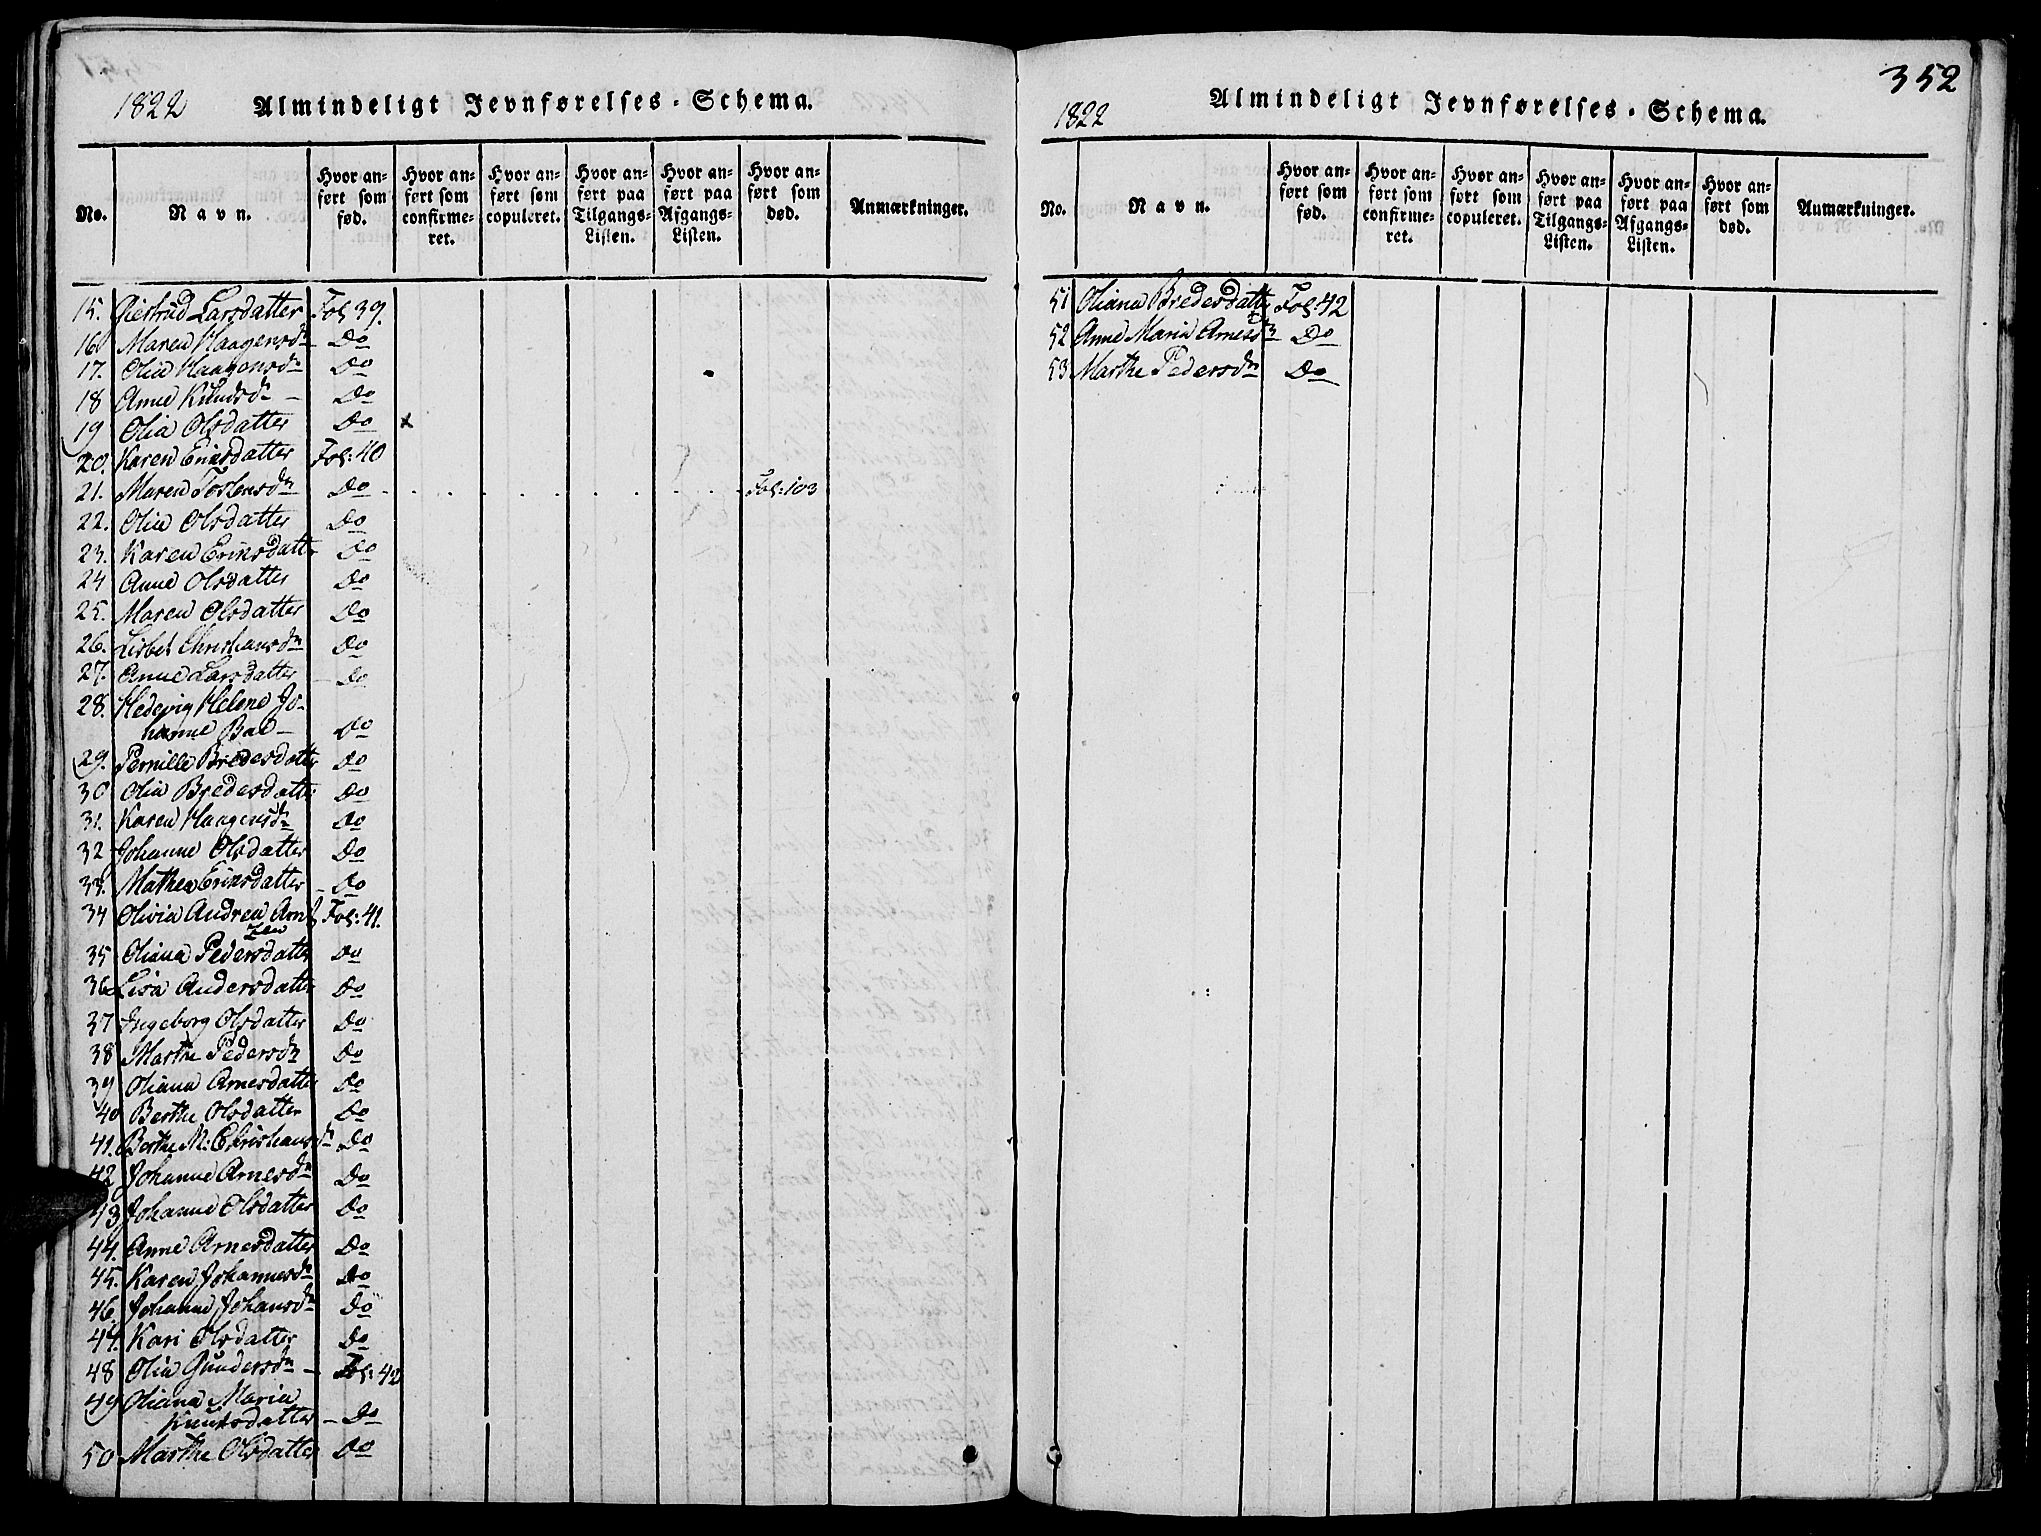 1822 Almindeligt Jevnførelses-Schema.
No. Navn. Hvor anført som fød. Hvor anført som confirmeret. Hvor anført som copuleret. Hvor anført paa Tilgangs-Listen. Hvor anført paa Afgangs-Listen. Hvor anført som død. Anmærkninger.
15. Giertrud Larsdatter Fol: 39.
16. Maren Haagensdr Do
17. Olia Haagensdr Do
18 Anne Knudsdr - Do
19 Olia Olsdatter Do x
20. Karen Eriksdatter Fol: 40
21. Maren Tostensdr Do . . . . . . . . . . . Fol: 103
22. Olia Olsdatter Do
23. Karen Eriksdatter Do
24 Anne Olsdatter Do
25. Maren Olsdatter Do
26. Lisbet Christiansdr Do
27. Anne Larsdatter - Do
28. Hedevig Helene Jo-
hanne Bae - Do
29. Pernille Bredesdatter Do
30 Olia Bredesdatter Do
31. Karen Haagensdr Do
32 Johanne Olsdatter Do
33. Mathea Eriksdatter - Do
34 Olivia Andrea Arnt Fol: 41.
zen
35 Oliana Pedersdatter Do
36 Lisa Andersdatter Do
37 Ingeborg Olsdatter Do
38 Marthe Pedersdr Do
39 Oliana Arnesdatter Do
40 Berthe Olsdatter Do
41. Berthe M: Christiansdr Do
42 Johanne Arnesdr Do
43 Johanne Olsdatter Do
44. Anne Arnesdatter Do
45. Karen Johannesdr Do
46. Johanne Johansdr Do
47. Kari Olsdatter Do
48 Olia Gundersdr - Fol: 42
49 Oliana Maria
Knudsdatter - Do
50 Marthe Olsdatter Do
352
1822 Almindeligt Jevnførelses-Schema.
No. Navn. Hvor anført som fød. Hvor anført som confirmeret. Hvor anført som copuleret. Hvor anført paa Tilgangs-Listen. Hvor anført paa Afgangs-Listen. Hvor anført som død. Anmærkninger.
51 Oliana Bredesdatter Fol: 42
52 Anne Maria Arnesdr Do
53. Marthe Pedersdr Do